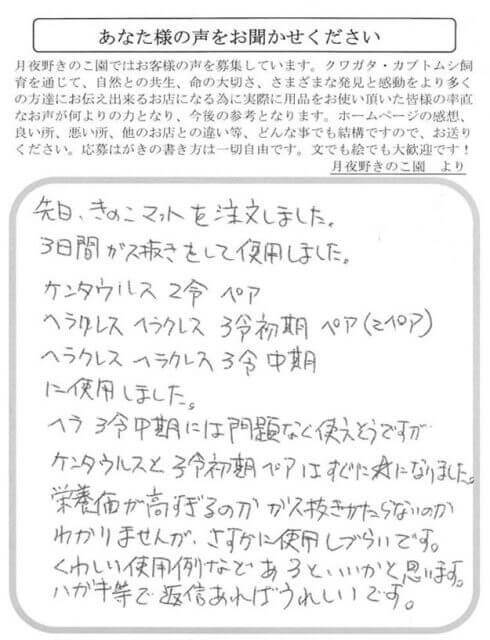 あなた様の声をお聞かせください
月夜野きのこ園ではお客様の声を募集しています。クワガタ・カブトムシ飼
育を通じて、自然との共生、命の大切さ、さまざまな発見と感動をより多く
の方達にお伝え出来るお店になる為に実際に用品をお使い頂いた皆様の率直
なお声が何よりの力となり、今後の参考となります。ホームページの感想、
良い所、悪い所、他のお店との違い等、どんな事でも結構ですので、お送り
ください。応募はがきの書き方は一切自由です。文でも絵でも大歓迎です！
月夜野きのこ園　より
先日、きのこマットを注文しました。
3日間ガス抜きをして使用しました。
ケンタウルス 2令 ペア
ヘラクレス ヘラクレス 3令初期 ペア(2ペア)
ヘラクレス ヘラクレス 3令 中期
に使用しました。
ヘラ 3令中期には問題なく使えそうですが
ケンタウルスと 3令初期ペアはすぐに★になりました。
栄養価が高すぎるのか ガス抜きがたらないのか
わかりませんが、さすがに使用しづらいです。
くわしい使用例などあるといいかと思います。
ハガキ等で返信あればうれしいです。